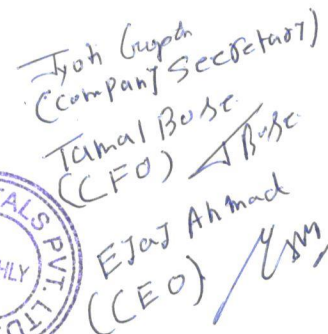 Jyoti Gupta
(Company Secretary)
Tamal Bose
(CFO) TBose
Ejaj Ahmad
(CEO)
ALS PVT. LTD
HLY